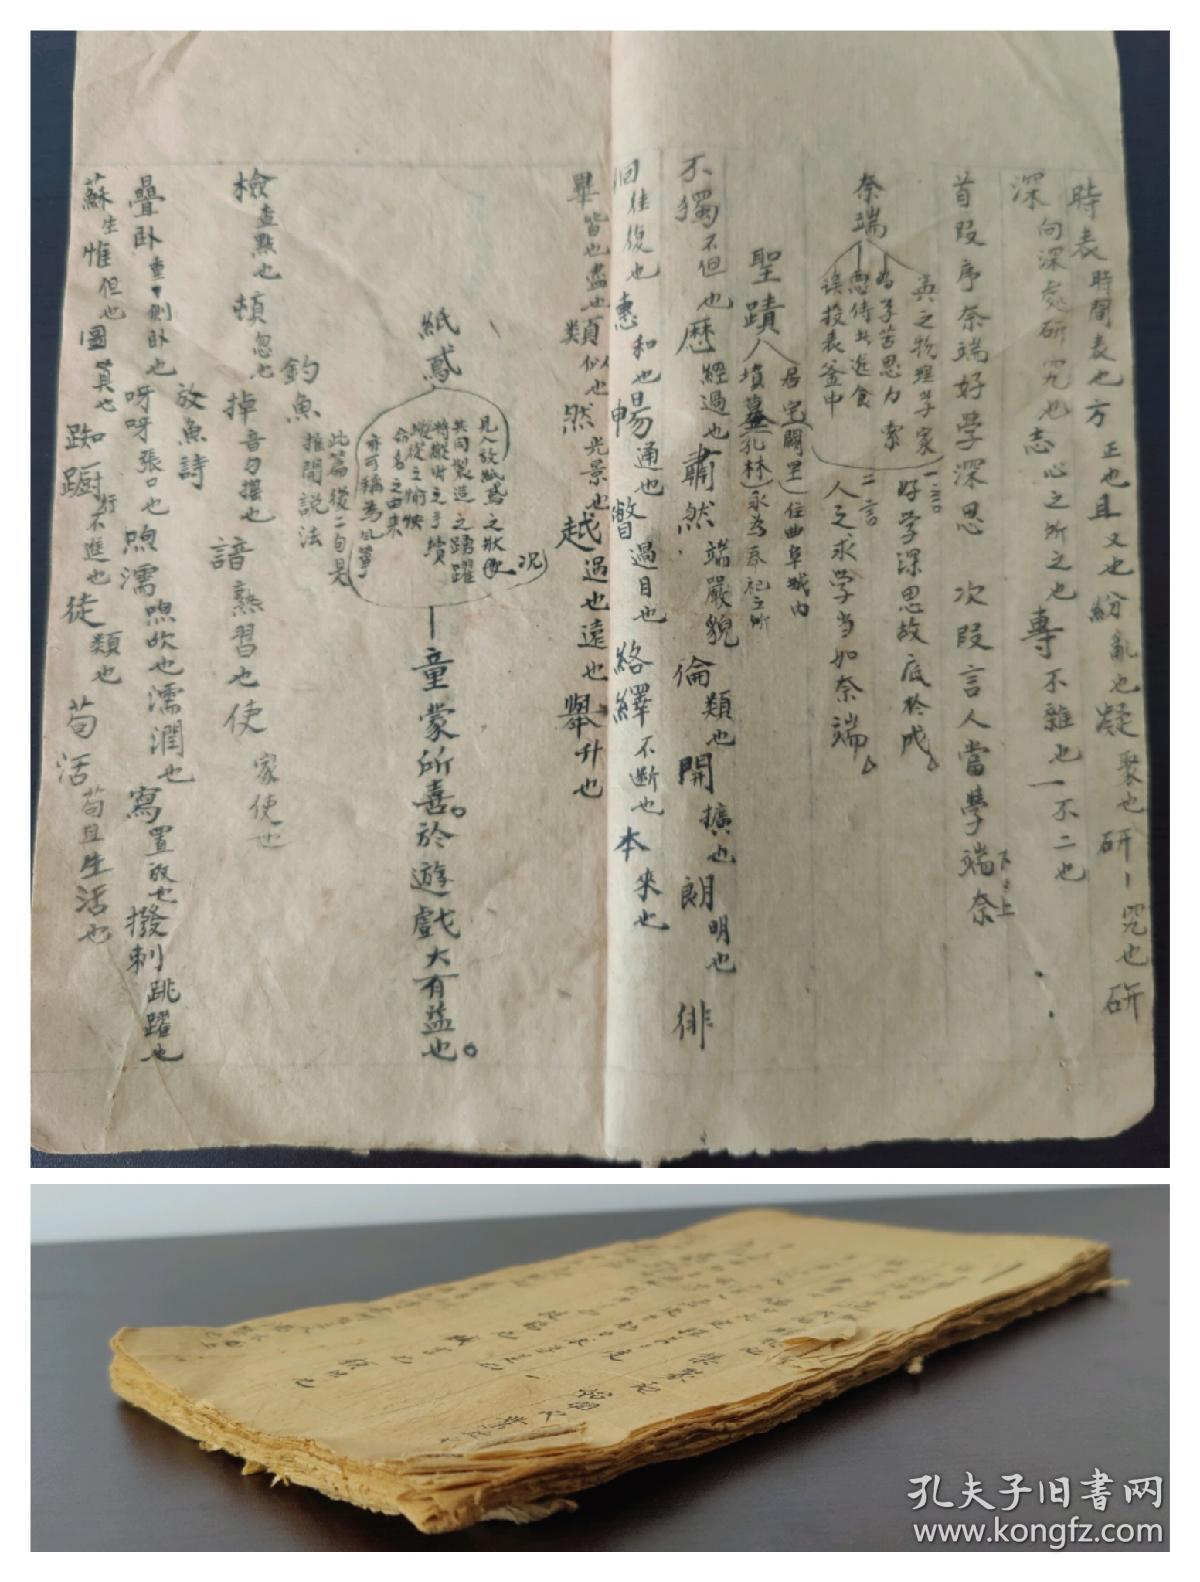 時表時間表也方正也且又也紛亂也凝聚也研一究也研
深向深處研究也志心之所之也專不雜也一不二也
首段序奈端好學深思 次段言人當學端奈
下、上
奈端
英之物理學家
為學苦思力索
忽侍者進食
误投表釜中
一言
好学深思故底於成。
二言
人之求学当如奈端。
聖蹟
居宅闕里(在曲阜城内
墳墓孔林)永為奉祀之所
不獨不但也歷經過也肅然端嚴貌倫類也開擴也朗明也徘
徊往復也惠和也暢通也瞥過目也絡繹不断也本來也
畢皆也盡也類似也然光景也越過也遠也舉升也
紙鳶
見人放紙鳶之狀況
共同製造之踴躍
命名之由來
亦可稱為風箏
童蒙所喜。於遊戲大有益也。
釣魚
此篇後二句是
推開說法
檢查點也頓忽也掉音勺擺也諳熟習也使家使也
放魚詩
疊卧重、側卧也呀呀張口也喣濡喣吹也濡潤也寫置放也撥刺跳躍也
蘇生惟但也圖莫也踟蹰行不進也徒類也苟活苟且生活也
孔夫子旧书网
www.kongfz.com